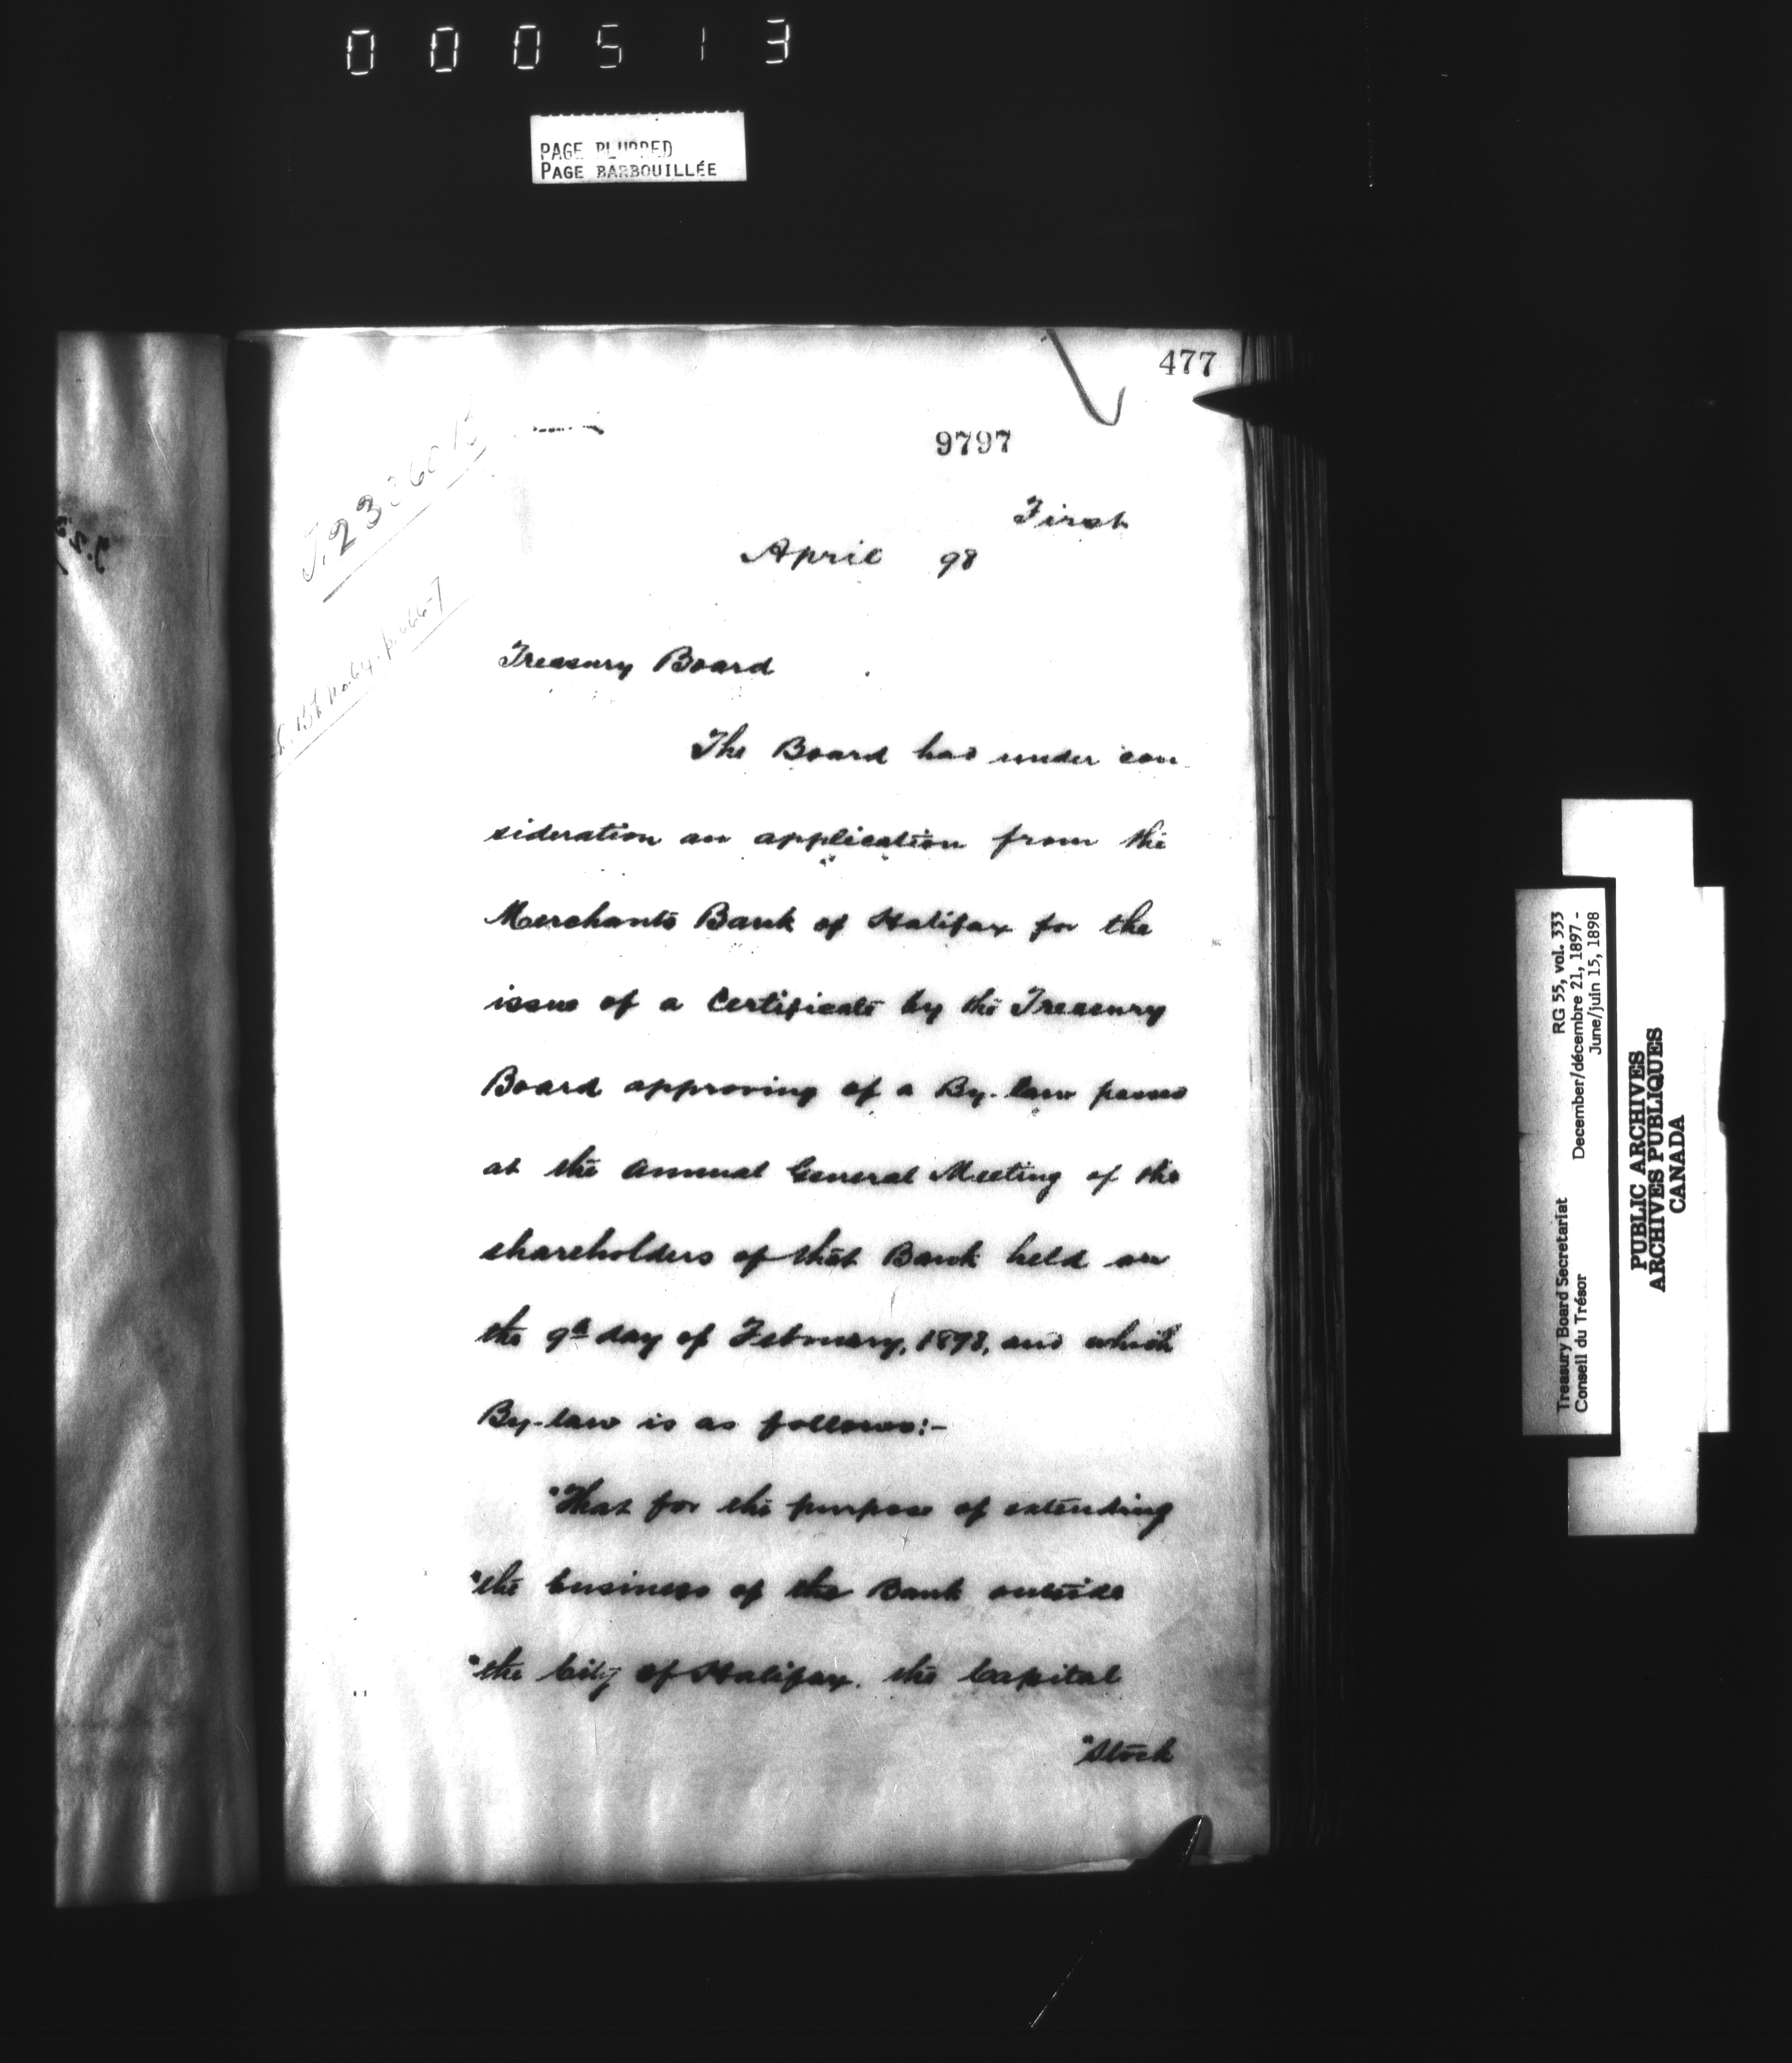 000513
PAGE BLURRED
PAGE BARBOUILLÉE
477
9797
First
April 98
Treasury Board
The Board had under con-
sideration an application from the
Merchants Bank of Halifax for the
issue of a Certificate by the Treasury
Board approving of a By-law passed
at the Annual General Meeting of the
shareholders of that Bank held on
the 9th day of February, 1898, and which
By-law is as follows:-
"That for the purpose of extending
"the business of the Bank outside
"the City of Halifax, the Capital
"Stock
Treasury Board Secretariat RG 55, vol. 333
Conseil du Trésor December/décembre 21, 1897 -
June/juin 15, 1898
PUBLIC ARCHIVES
ARCHIVES PUBLIQUES
CANADA